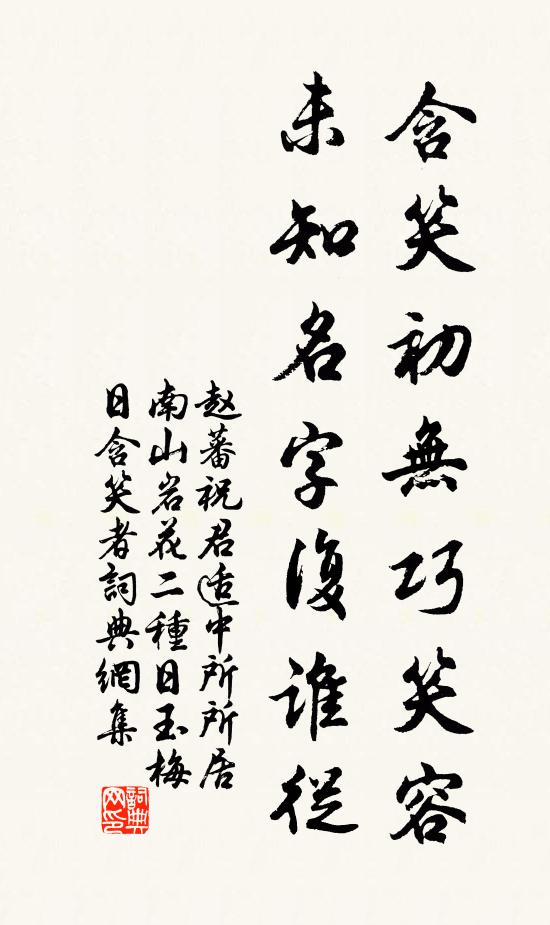 含笑初無巧笑容
未知名字復誰從
趙蕃祝君适中所所居
南山岩花二種日玉梅
日含笑者詞典網集
詞典網印